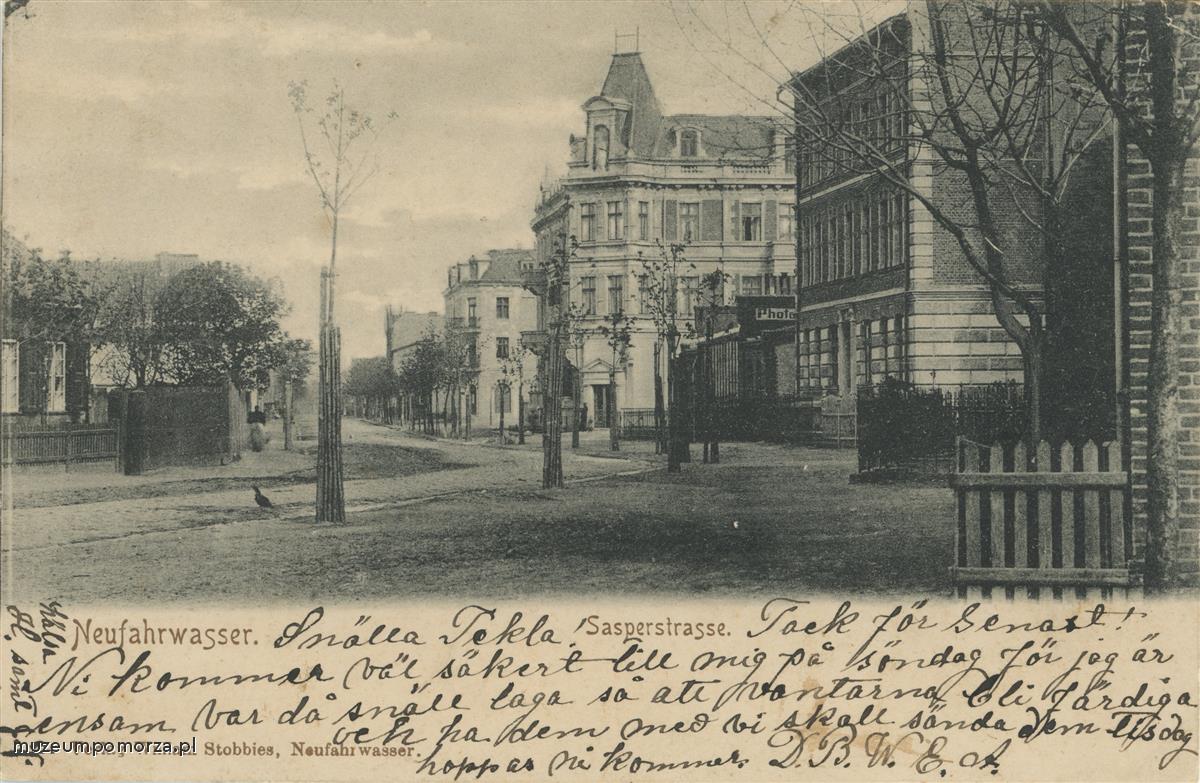 Photo
Neufahrwasser. Snälla Tekla! Sasperstrasse. Tack för Senast!
Ni kommer väl säkert till mig på söndag för jag är
ensam var då snäll laga så att vantarna bli färdiga
och ha dem med vi skall sända dem Tisdag
hoppas ni kommer D. B. W. E. A.
Stobbies, Neufahrwasser.
Häls
H. samt
muzeumpomorza.pl